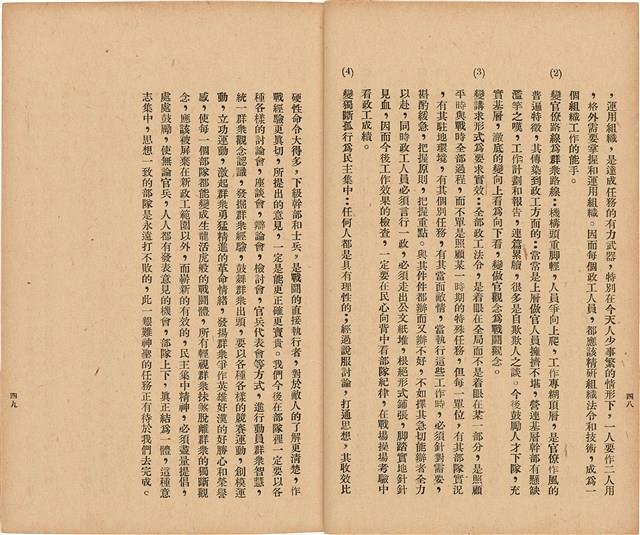 ，運用組織，是達成任務的有力武器，特別在今天人少事繁的情形下，一人要作二人用
，格外需要掌握和運用組織。因而每個政工人員，都應該精研組織法令和技術，成為一
個組織工作的能手。
(2) 變官僚路線為群衆路線：機構頭重脚輕，人員爭向上爬，工作專糊頂層，是官僚作風的
普遍特徵，其傳染到政工方面的：常常是上層傲官人員擁擠不堪，營連基層幹部有懸缺
濫竽之嘆，工作計劃和報告，連篇累牘，很多是自欺欺人之談。今後鼓勵人才下隊，充
實基層，澈底的變向上看為向下看，變做官觀念為戰鬪觀念。
(3) 變講求形式為要求實效：全部政工法令，是着眼在全局而不是着眼在某一部分，是照顧
平時與戰時全部過程，而不單是照顧某一時期的特殊任務，但每一單位，有其部隊實況
，有其駐地環境，有其個別任務，有其當面敵情，當執行這些工作時，必須針對需要，
斟酌緩急，把握原則，把握重點。與其件件都辦而又辦不好，不如擇其急切能辦者全力
以赴，同時政工人員必須言行一政，必須走出公文紙堆，根絕形式鋪張，脚踏實地針針
見血，因而今後工作效果的檢查，一定要在民心向背中看部隊紀律，在戰場操場考驗中
看政工成績。
(4) 變獨斷孤行為民主集中：任何人都是具有理性的；經過說服討論，打通思想，其收效比
四八
硬性命令大得多，下級幹部和士兵，是戰鬪的直接執行者，對於敵人的了解更清楚，作
戰經驗更眞切，所提出的意見，一定是能更正確更寶貴。我們今後在部隊裡一定要以各
種各樣的討論會，座談會，辯論會，檢討會，官兵代表會等方式，進行動員群衆智慧，
統一群衆觀念認識，發掘群衆經驗，鼓舞群衆出頭，要以各種各樣的競賽運動，創模運
動，立功運動，激起群衆勇猛精進的革命情緒，發揚群衆爭作英雄好漢的好勝心和榮譽
感，使每一個部隊都能變成生龍活虎般的戰鬪體，所有輕視群衆抹煞脫離群衆的獨斷觀
念，應該被屏棄在新政工範圍以外，而嶄新的有效的，民主集中精神，必須盡量提倡，
處處鼓勵，使無論官兵，人人都有發表意見的機會，部隊上下，眞正結為一體，這種意
志集中，思想一致的部隊是永遠打不敗的，此一艱難神聖的任務正有待於我們去完成。
四九